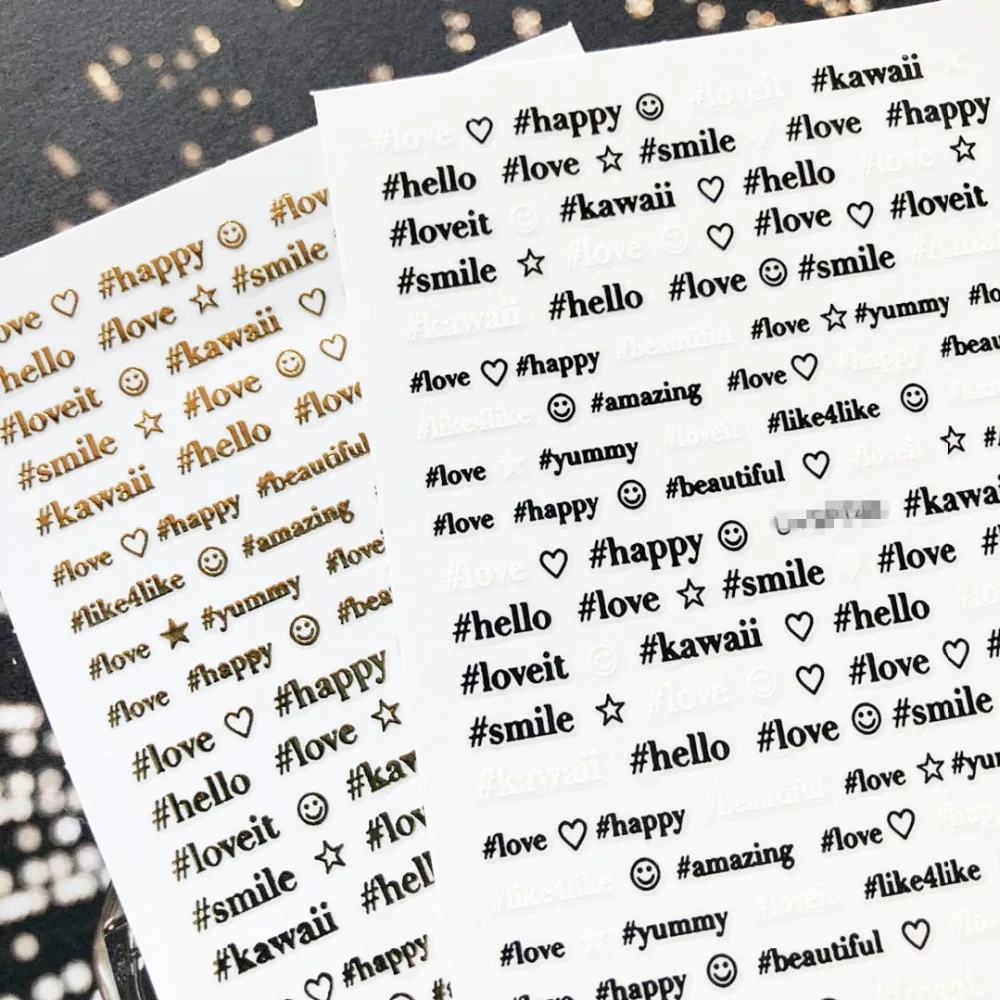 #happy #lov
ove #love #smile
hello #kawaii
#loveit #love
#smile #hello #love
#kawaii #beautiful
#love #happy
#like4like #amazing
#love #yummy #love
#love #happy #bea
#love #happy
#hello #love
#loveit #kaw
#smile #lov
#kawaii #hell
#happy
#love ♡ #happy ☺ #loveit #kawaii
#hello #love ☆ #smile #love #happy
#loveit #kawaii ♡ #hello #love ☆
#smile ☆ #love ☺ ♡ #love ♡ #loveit
#kawaii #hello #love ☺ #smile #Ama
#love ♡ #happy #beautiful #love ☆ #yummy #lo
#like4like ☺ #amazing #love ♡ #happy #beau
#love ★ #yummy #loveit #like4like ☺ #am
#love #happy ☺ #beautiful ♡ #loveit ☆ #
#love ♡ #happy ☺ #kawai
#hello #love ☆ #smile #love #
#loveit ☺ #kawaii ♡ #hello #lo
#smile ☆ #love ☺ ♡ #love ♡ #
#kawaii #hello #love ☺ #smile
#love ♡ #happy #beautiful #love ☆ #yum
#like4like ☺ #amazing #love ♡ #happ
#love ★ #yummy #loveit #like4like
#happy ☺ #beautiful ♡ #lov
#loveit